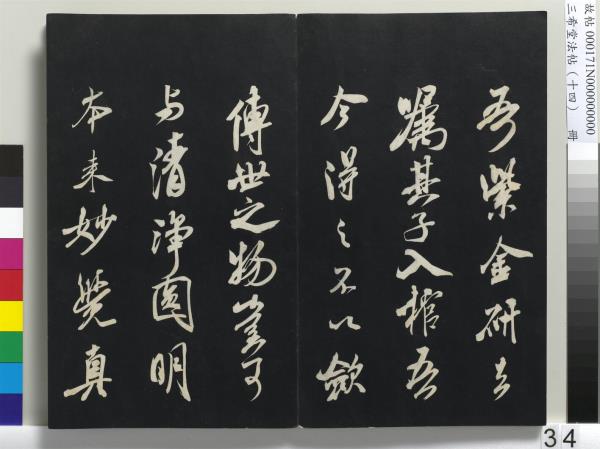 吾紫金研去
嘱其子入棺吾
今得之不以歛
傳世之物豈可
与清浄圓明
本来妙覺真
故帖 000171N000000000
三希堂法帖（十四） 冊
34